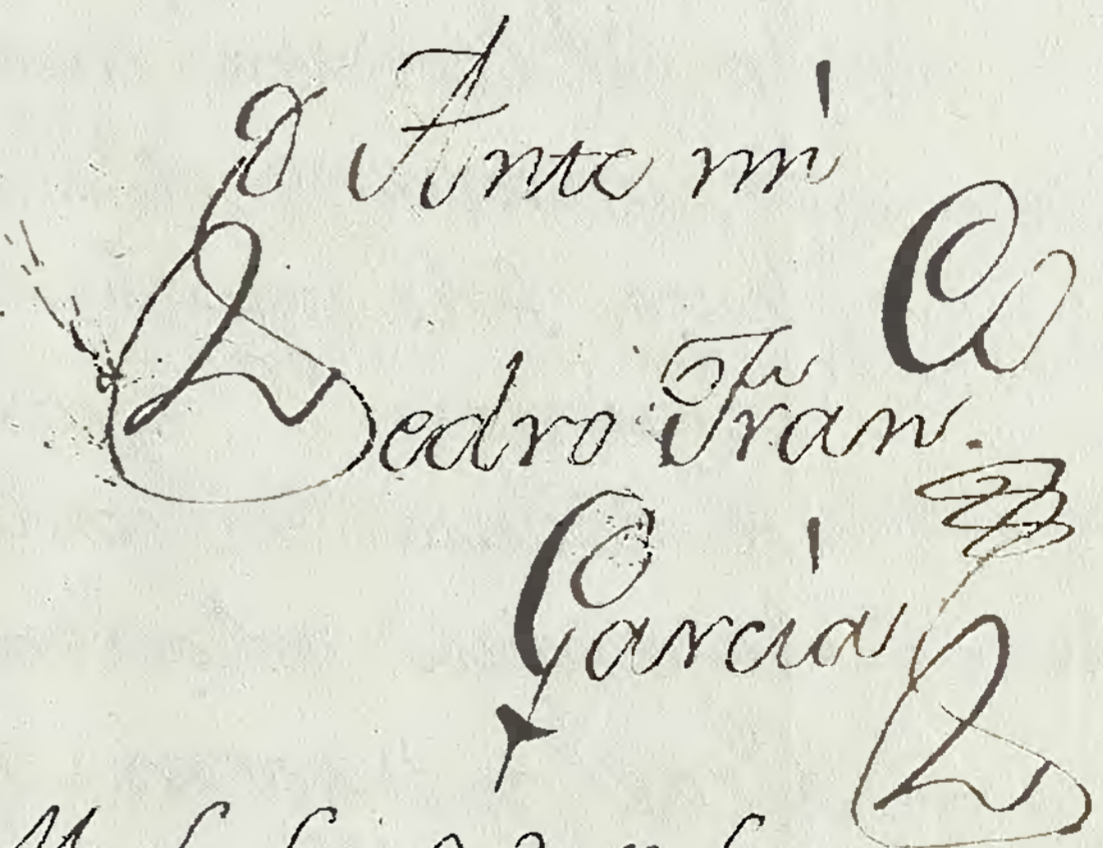 Ante mí
Pedro Fran.
García